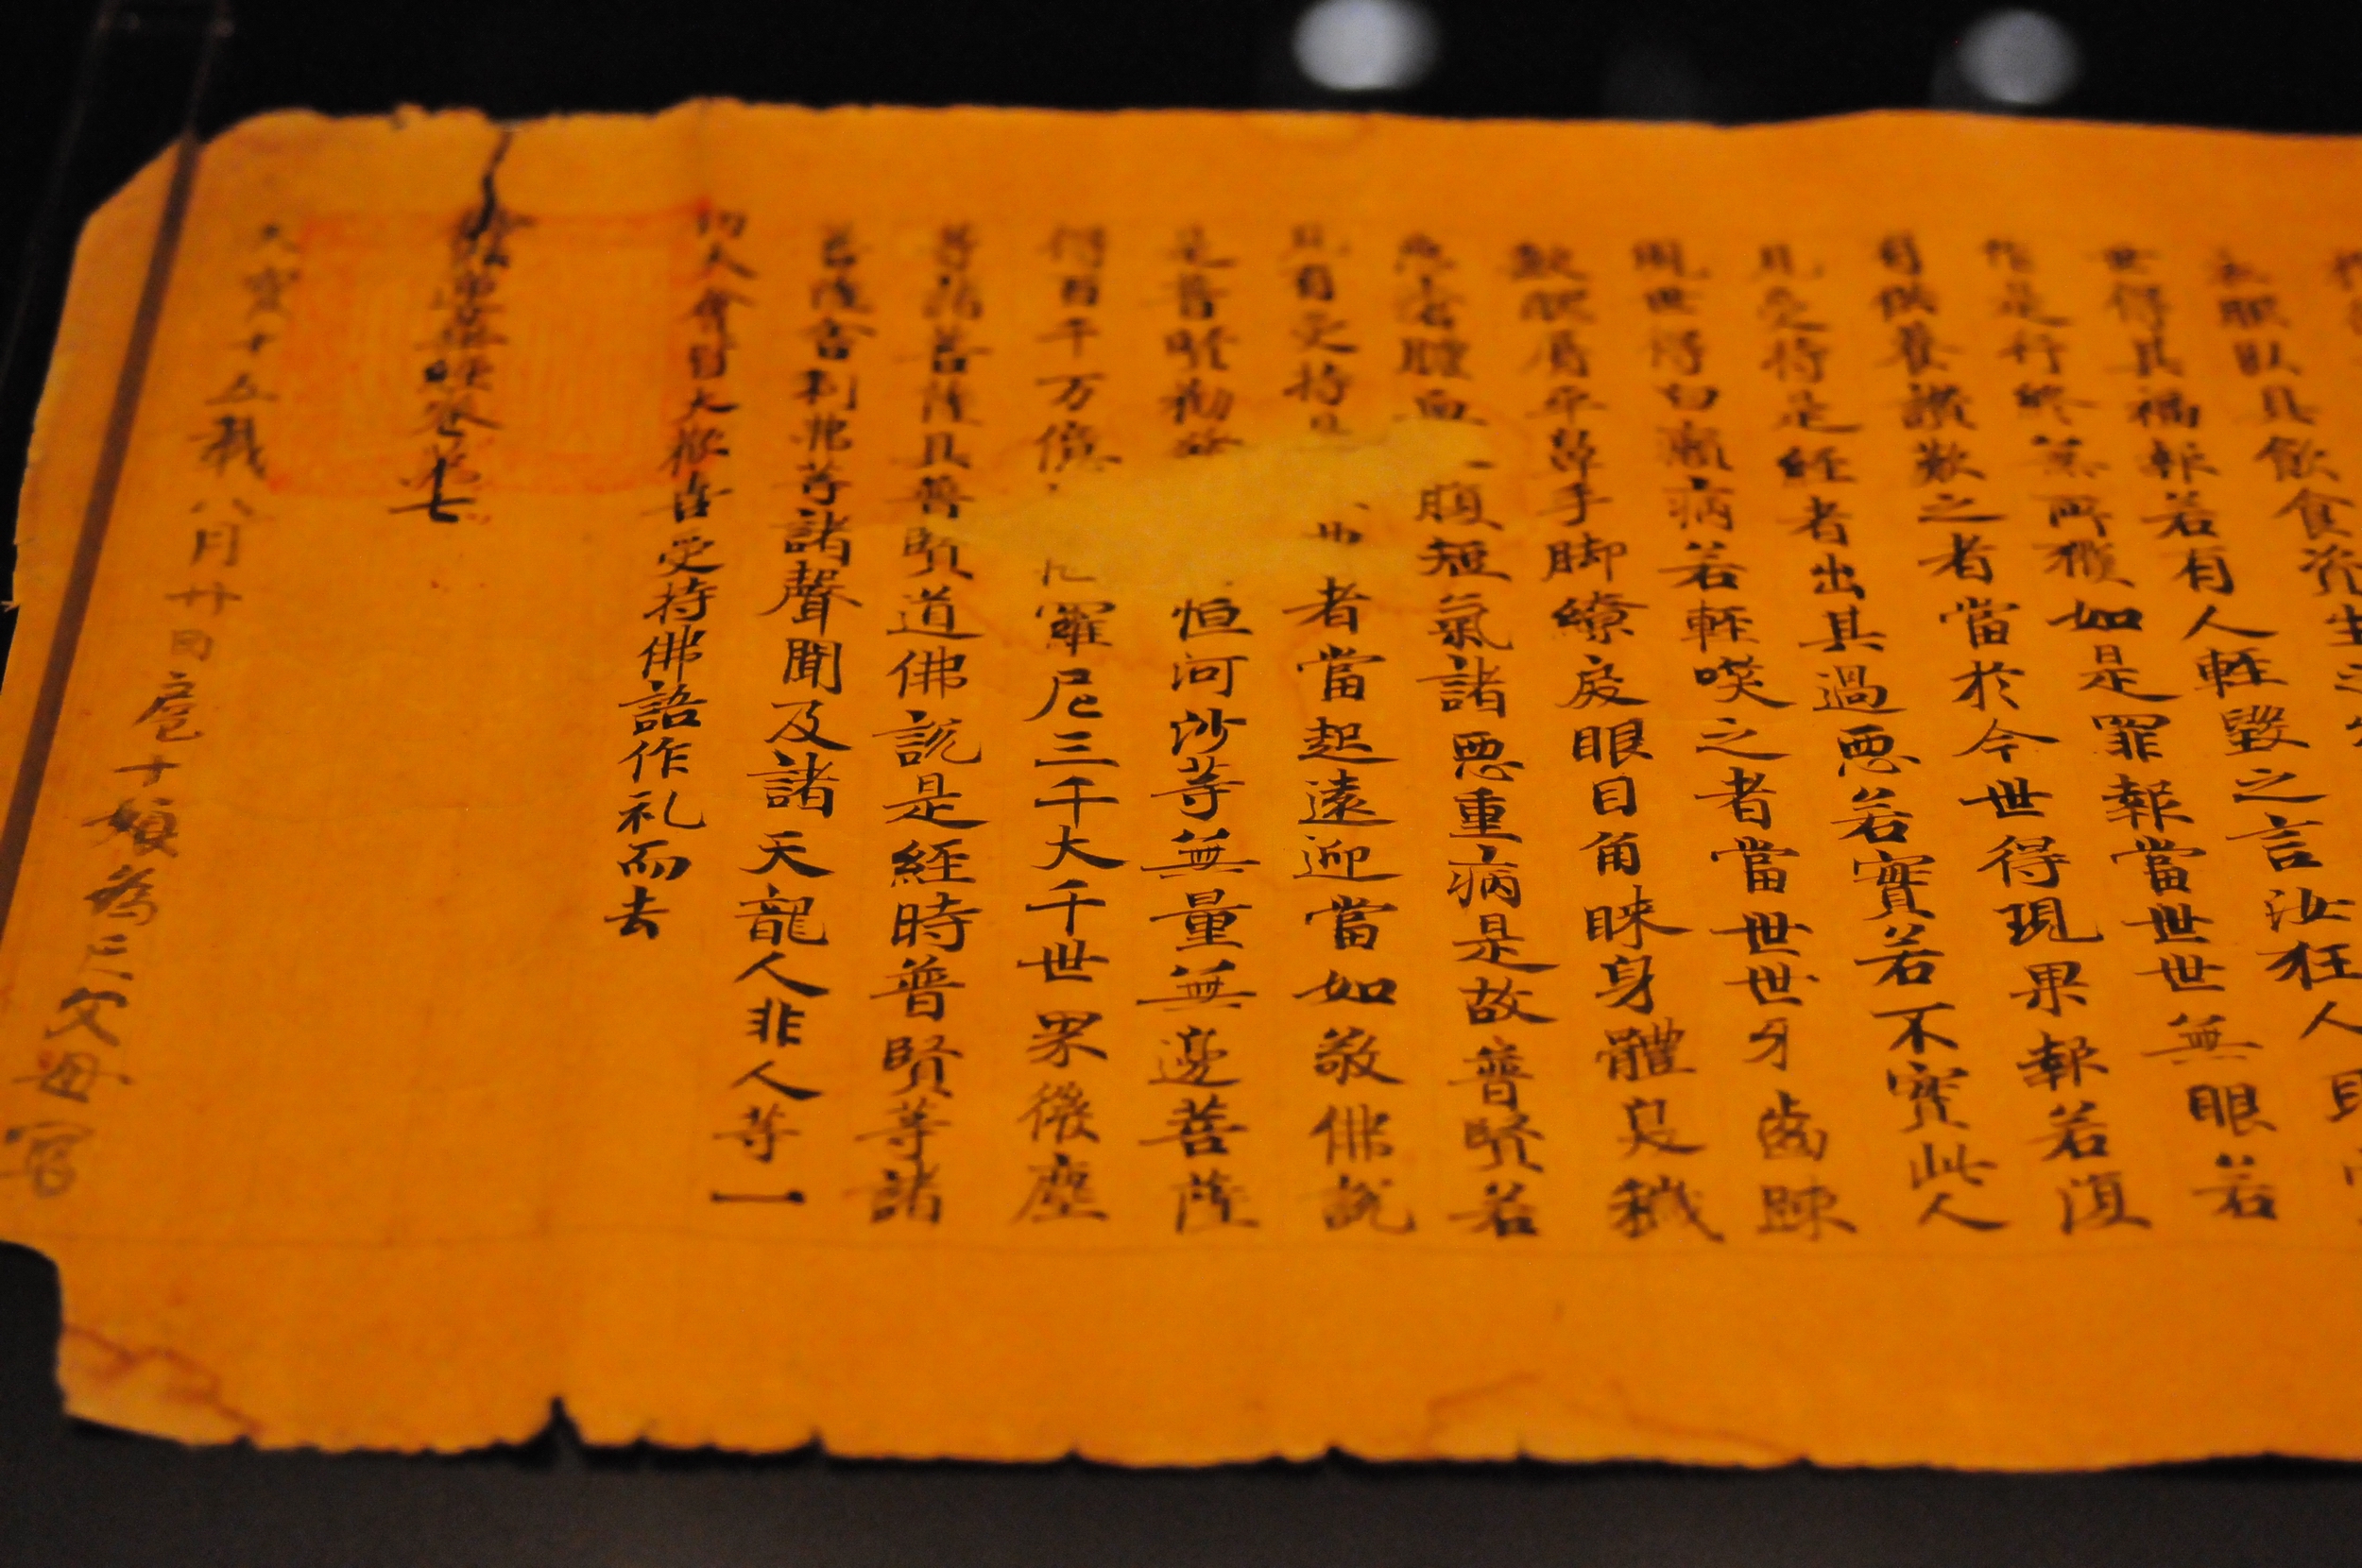 衣服臥具飲食資生
世得其福報若有人輕毀之言汝狂人
作是行終無所獲如是罪報當世世無眼若
有供養讚歎之者當於今世得現果報若復
見受持是經者出其過惡若實若不實此人
現世得白癩病若輕唉之者當世世牙齒踈
歎脣平鼻手脚繚戾眼目角睞身體臭穢
膿血 腹短氣諸惡重病是故普賢若
見有受持是 者當起遠迎當如敬佛說
是普賢勸 恒河沙等無量無邊菩薩
得百千万億 羅尼三千大千世界微塵
等諸菩薩具普賢道佛說是經時普賢等諸
菩薩舍利弗等諸聲聞及諸天龍人非人等一
切大會皆大歡喜受持佛語作礼而去
蓮華經卷第七
天寶十五載八月廿日 十娘為亡父母寫